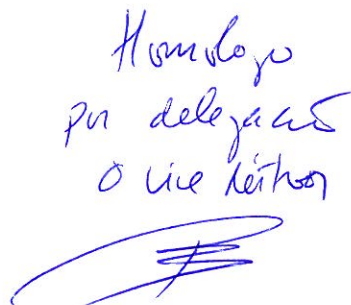 Homologo
por delegação
O vice Reitor